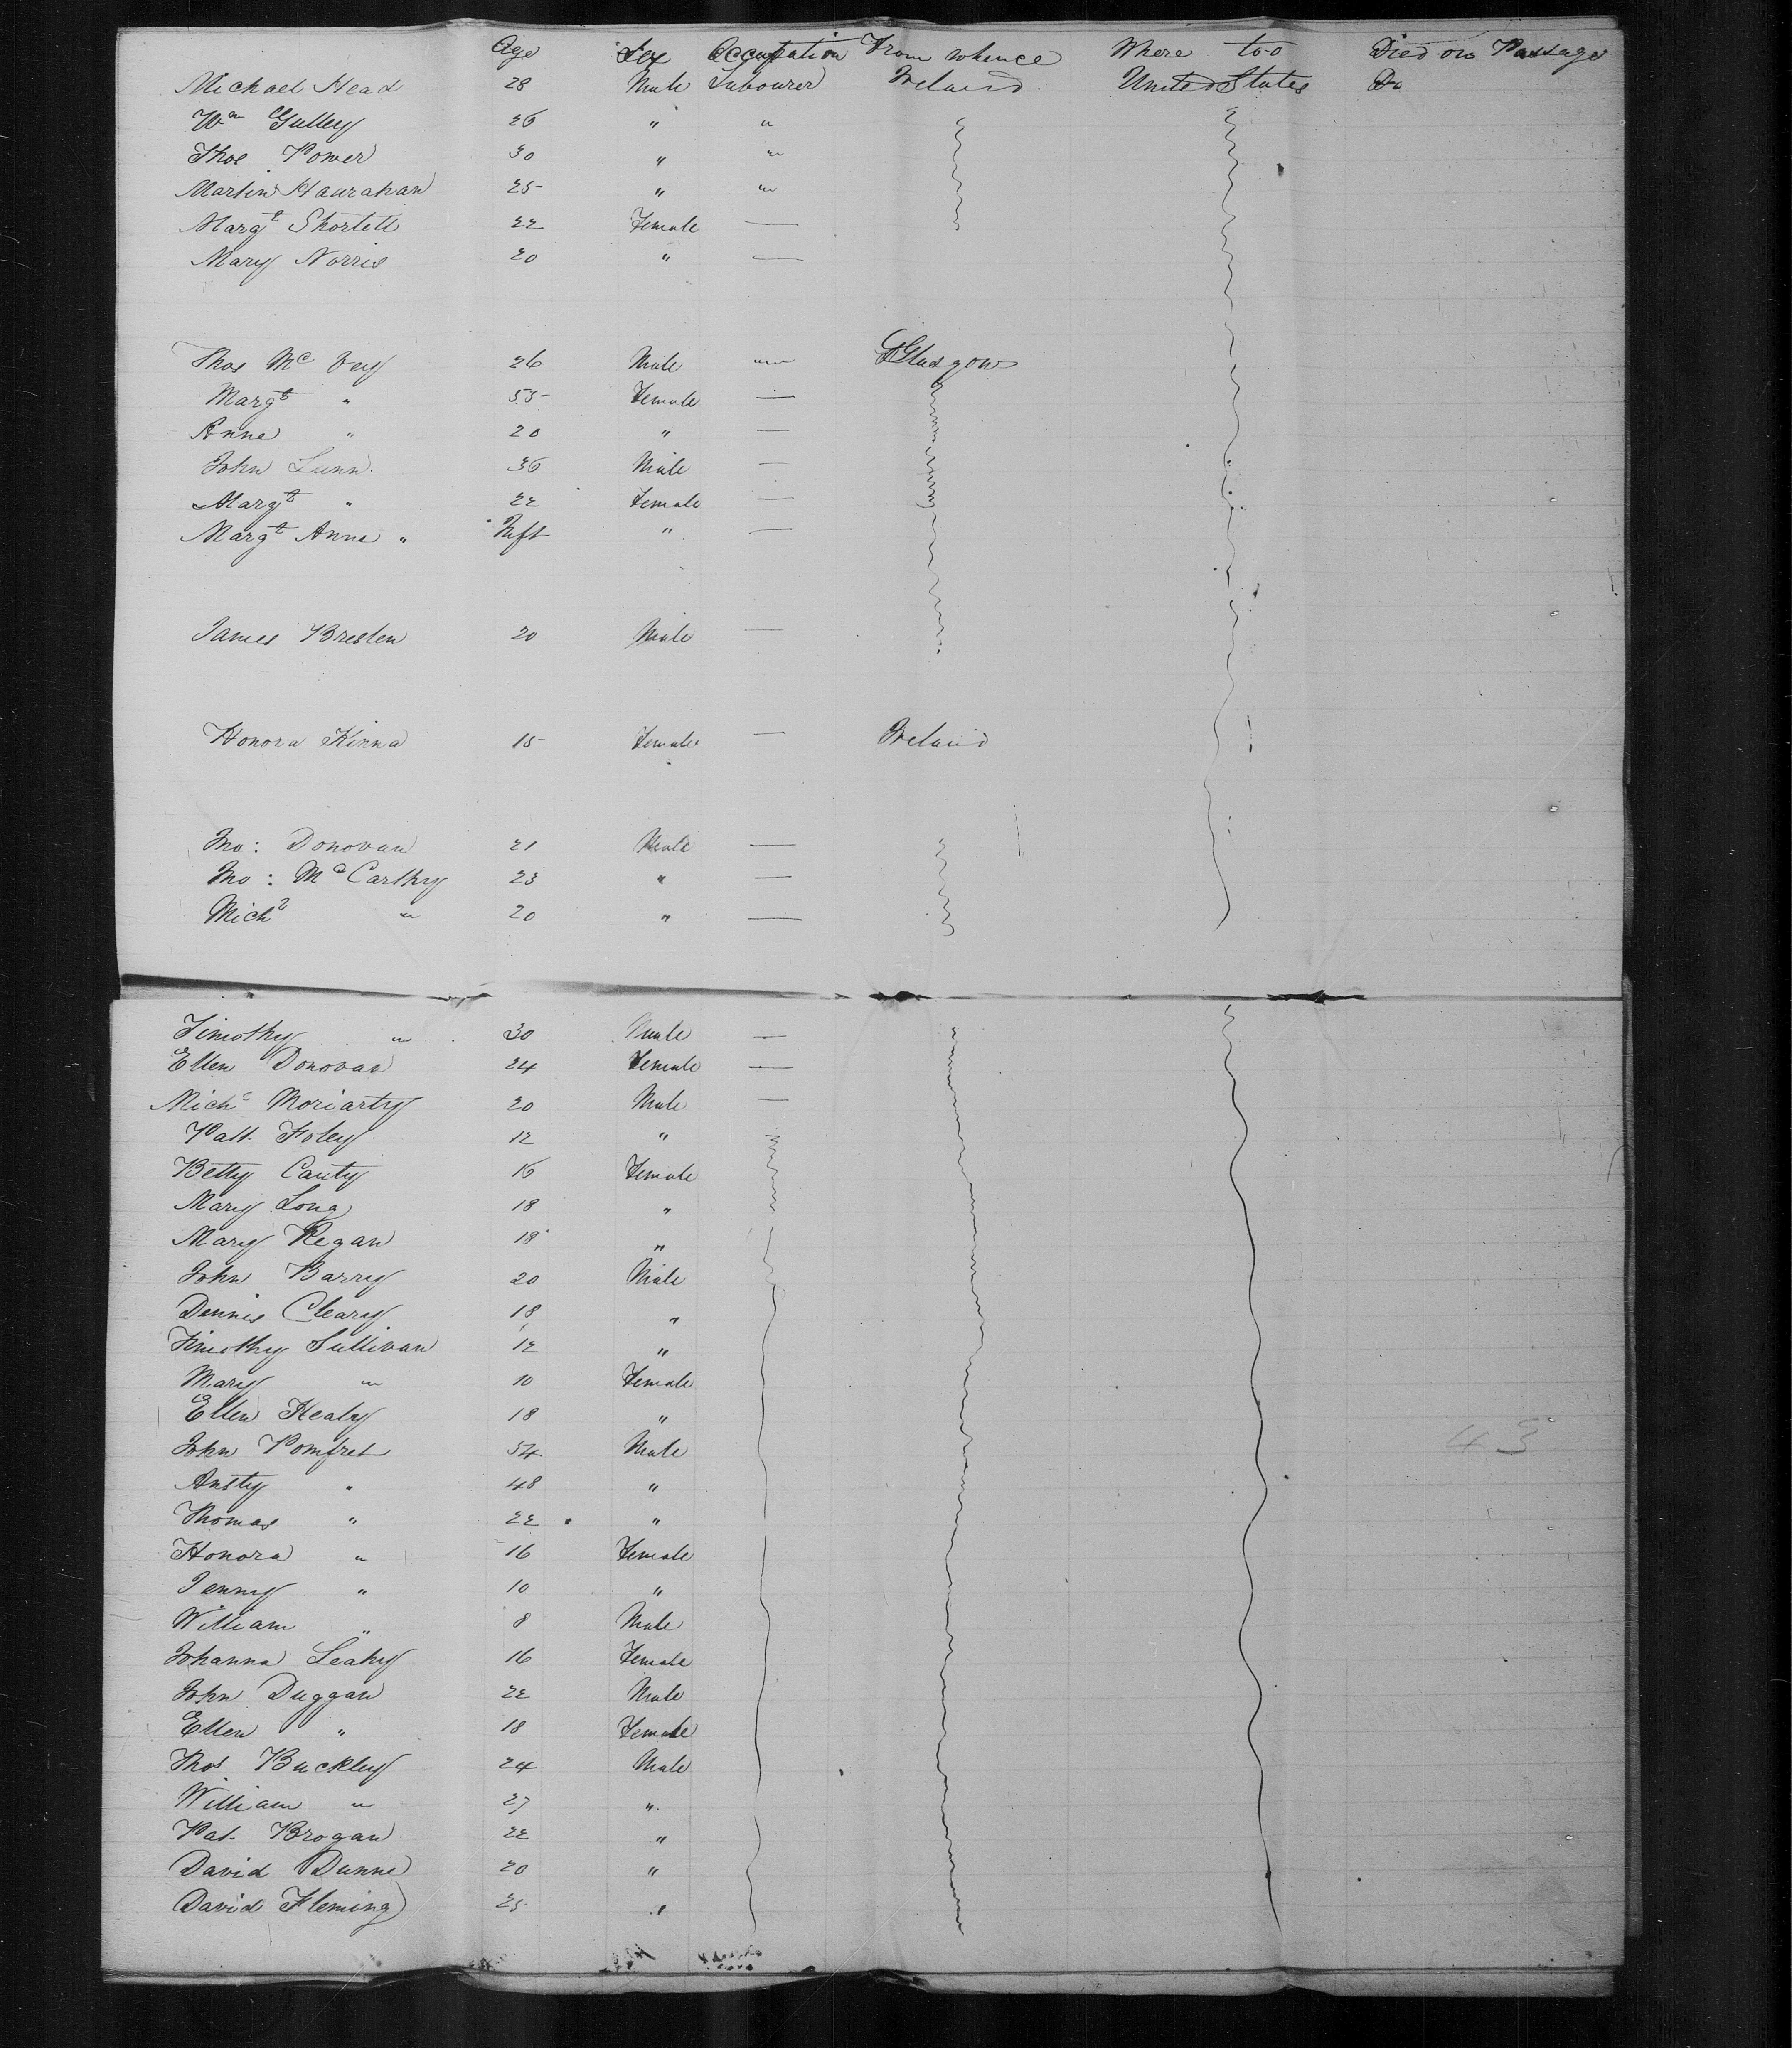 Age Sex Occupation From whence Where too Died on Passage
Michael Head 28 Male Labourer Ireland United States Do
Wm Gulley 26 " "
Thos Power 30 " "
Martin Hanrahan 25 " "
Margt Shortell 22 Female —
Mary Norris 20 " —
Thos Mc Vey 26 Male " Glasgow
Margt " 55 Female —
Anne " 20 " —
John Lunn 36 Male —
Margt " 22 Female —
Margt Anne " Inft " —
James Breslen 20 Male —
Honora Kinna 15 Female — Ireland
Jno: Donovan 21 Male —
Jno: McCarthy 23 " —
Michl " 20 " —
Timothy " 30 Male —
Ellen Donovan 24 Female —
Michl Moriarty 20 Male —
Patt. Foley 12 "
Betty Canty 16 Female
Mary Long 18 "
Mary Regan 18 "
John Barry 20 Male
Dennis Cleary 18 "
Timothy Sullivan 12 "
Mary " 10 Female
Ellen Healy 18 "
John Pomfret 54 Male
Ansty " 48 "
Thomas " 22 "
Honora " 16 Female
Jenny " 10 "
William " 8 Male
Johanna Leahy 16 Female
John Duggan 22 Male
Ellen " 18 Female
Thos Buckley 24 Male
William " 27 "
Pat. Brogan 22 "
David Dunne 20 "
David Fleming 25 "
43